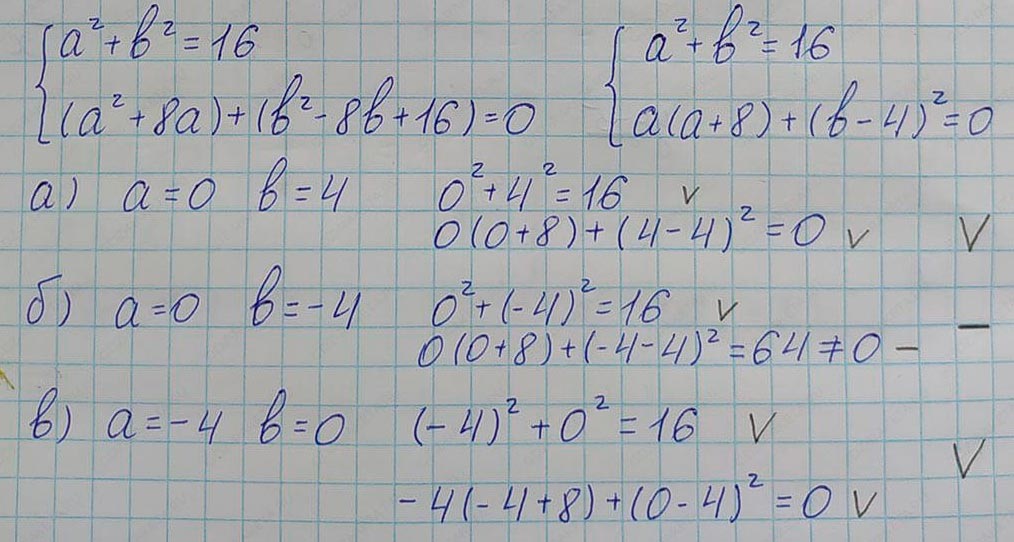 a² + b² = 16
(a² + 8a) + (b² - 8b + 16) = 0
a² + b² = 16
a(a + 8) + (b - 4)² = 0
а) a = 0 b = 4 0² + 4² = 16 v
0(0 + 8) + (4 - 4)² = 0 v V
б) a = 0 b = -4 0² + (-4)² = 16 v
0(0 + 8) + (-4 - 4)² = 64 ≠ 0 - -
в) a = -4 b = 0 (-4)² + 0² = 16 V
-4(-4 + 8) + (0 - 4)² = 0 V V